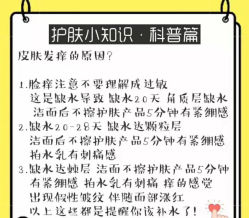 护肤小知识·科普篇
皮肤发痒的原因？
1.脸痒注意不要理解成过敏
这是缺水导致 缺水20天 角质层缺水
洁面后不擦护肤产品5分钟有紧绷感
2.缺水20-28天 缺水达颗粒层
洁面后不擦护肤产品5分钟有紧绷感
拍水乳有刺痛感
3.缺水达棘层 洁面不擦护肤产品5分钟
有紧绷感 拍水乳有刺痛 痒的感觉
出现假性皱纹 伴随面部涨红
以上这些都是提醒你该补水了!